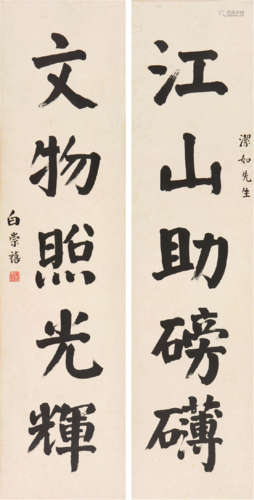 潔如先生
江山助磅礴
文物照光輝
白崇禧